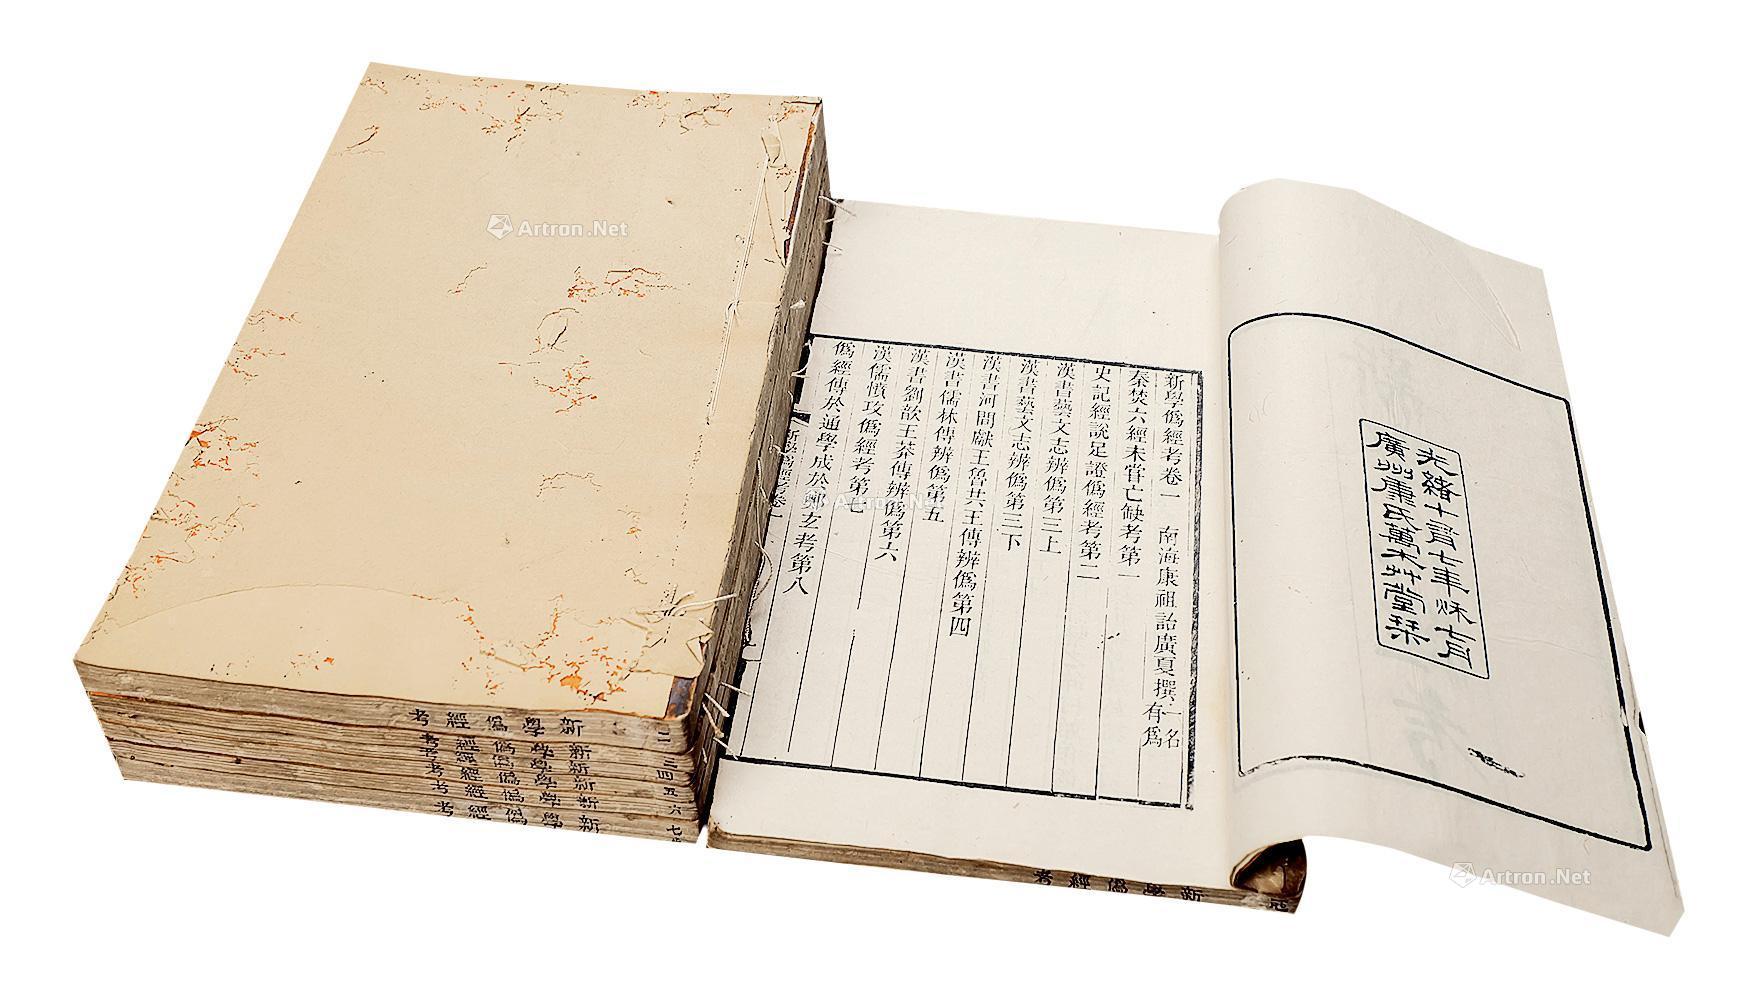 光緒十有七年秌七月
廣州康氏萬木艸堂栞
新學僞經考卷一 南海康祖詒廣夏撰一名有爲
秦焚六經未嘗亡缺考第一
史記經說足證僞經考第二
漢書藝文志辨僞第三上
漢書藝文志辨僞第三下
漢書河間獻王魯共王傳辨僞第四
漢書儒林傳辨僞第五
漢書劉歆王莽傳辨僞第六
漢儒憤攻僞經考第七
僞經傳於通學成於鄭玄考第八
新學僞經考卷一
新學僞經考
新學僞經考 二
新學僞經考 三
新學僞經考 四
新學僞經考 五
新學僞經考 六
七
Artron.Net
Artron.Net
Artron.Net